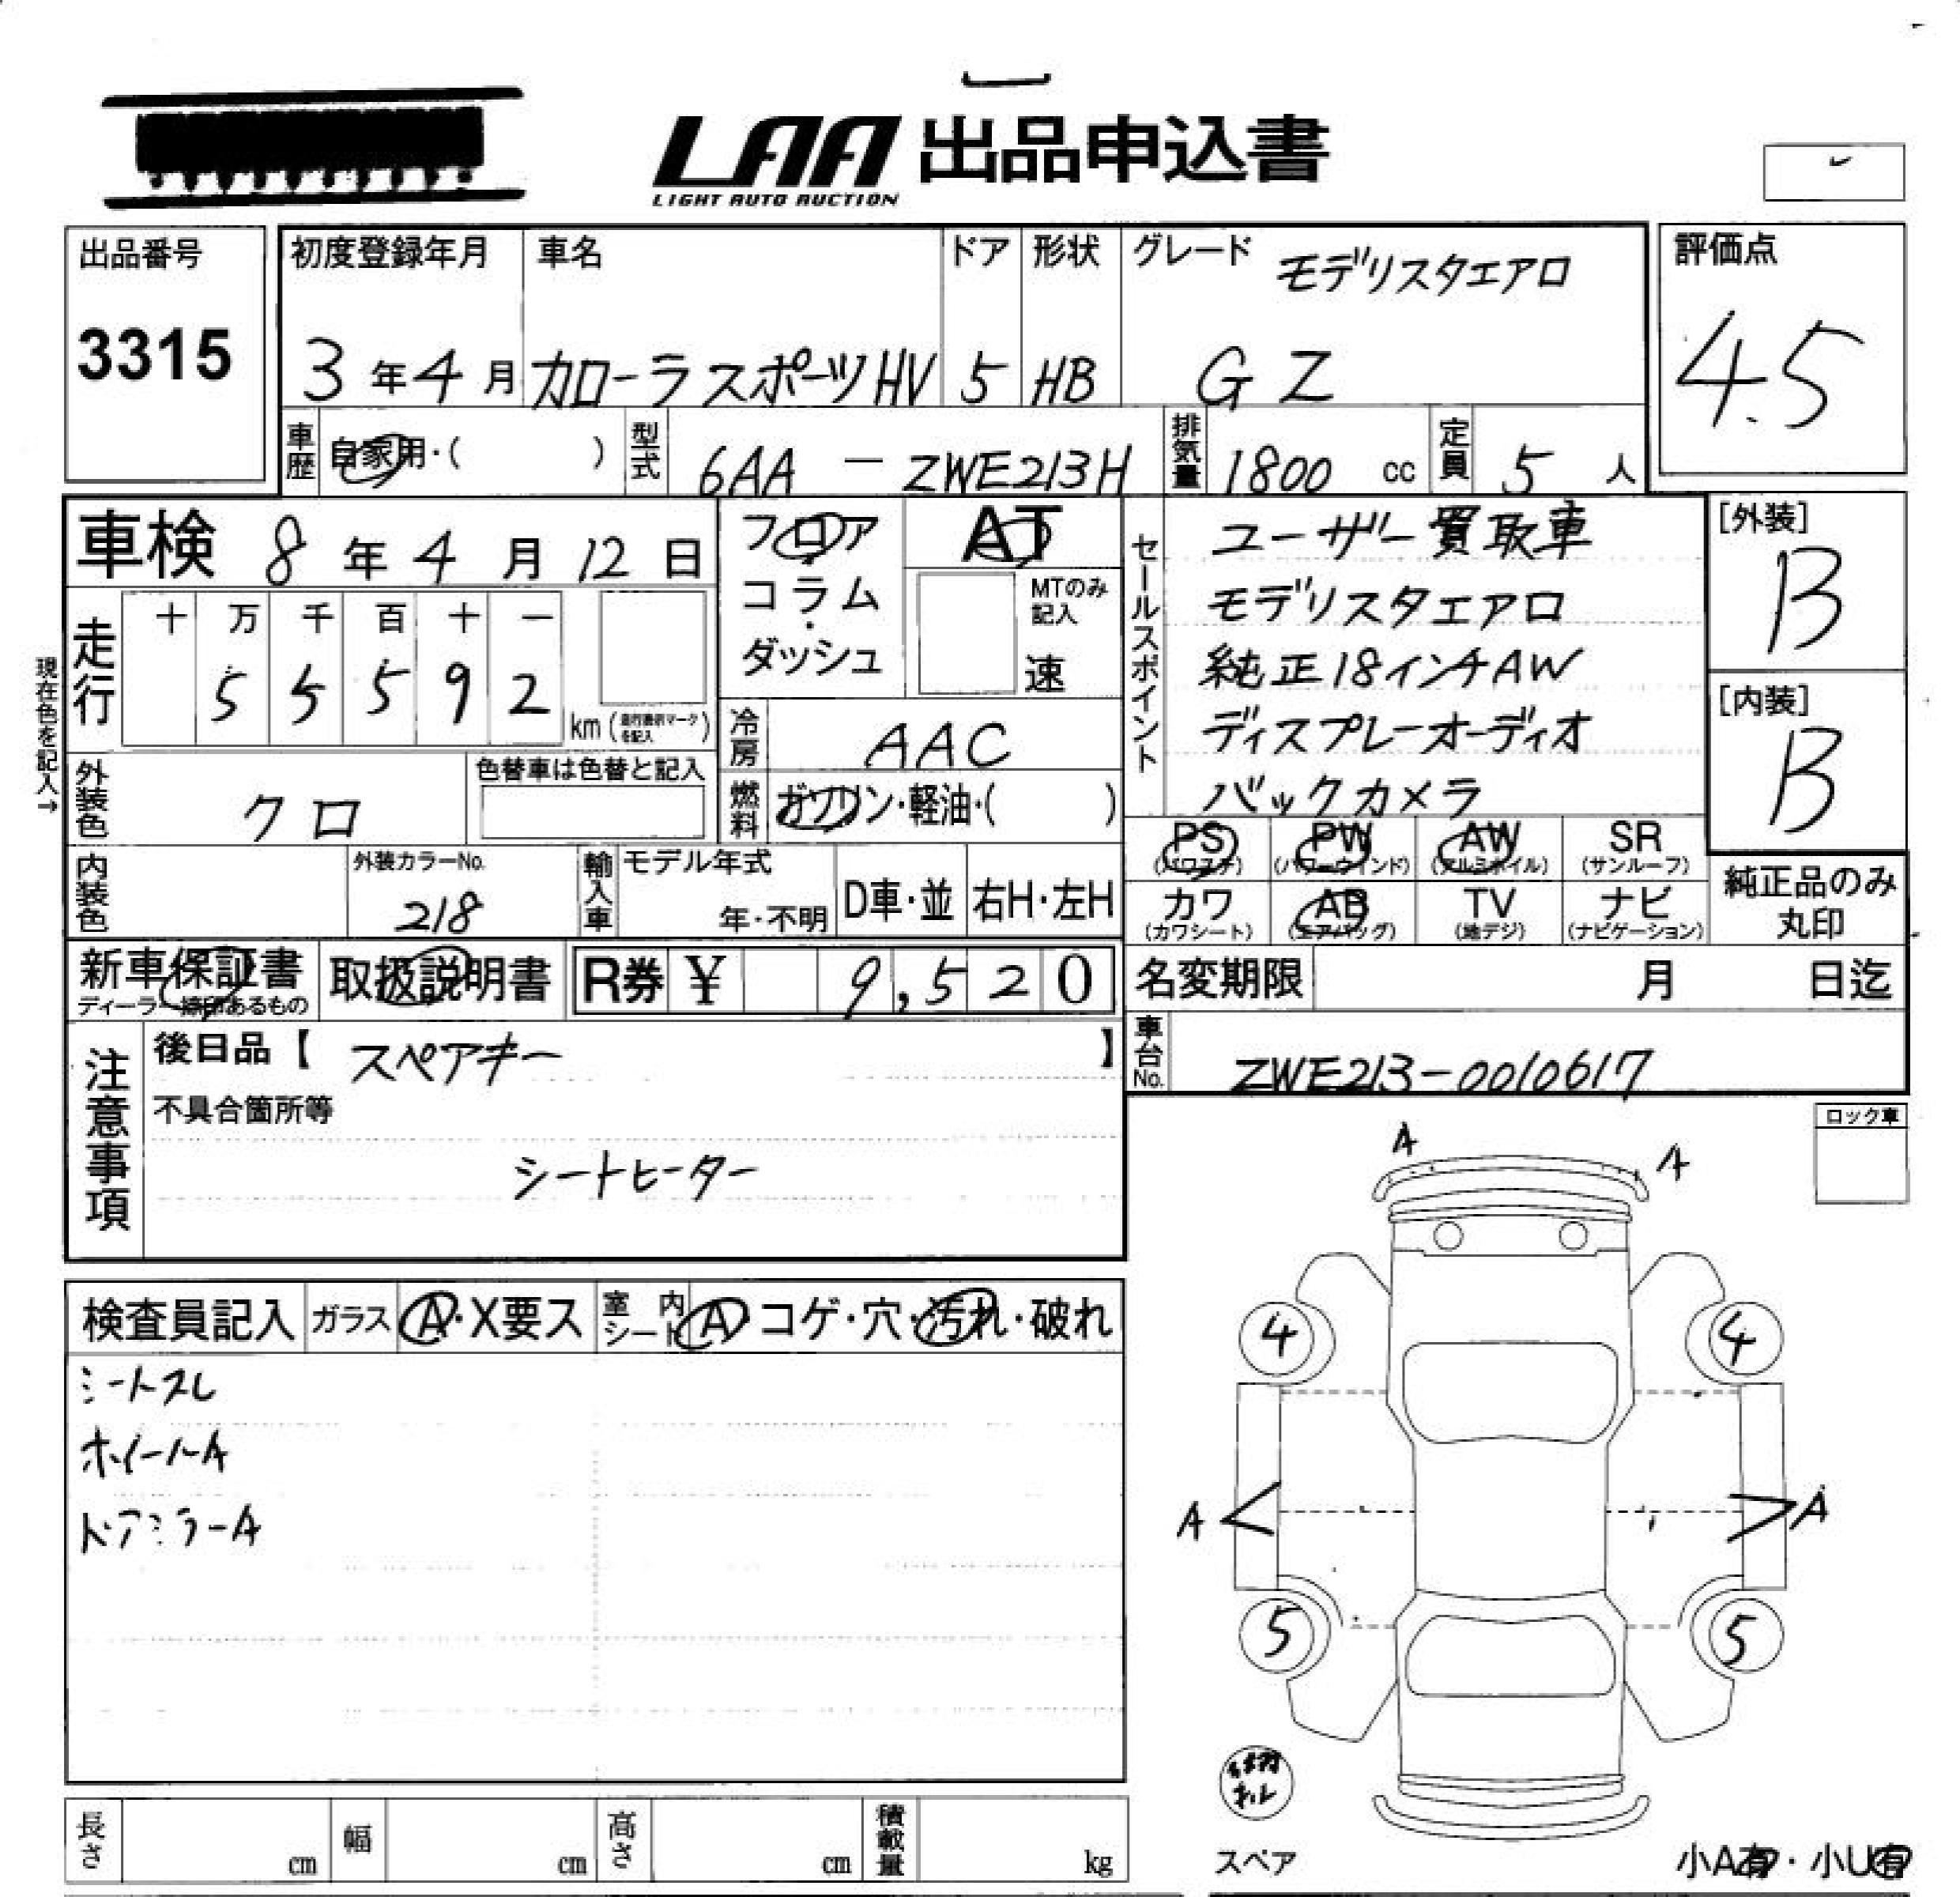 LAA 出品申込書
LIGHT AUTO AUCTION
出品番号
3315
初度登録年月
3年4月
車名
カローラスポーツHV
ドア
5
形状
HB
グレード
モデリスタエアロ
GZ
評価点
4.5
車歴
自家用・( )
型式
6AA-ZWE213H
排気量
1800 cc
定員
5人
車検 8年4月12日
フロア
コラム
・
ダッシュ
AT
MTのみ
記入
速
セールスポイント
ユーザー買取車
モデリスタエアロ
純正18インチAW
ディスプレーオーディオ
バックカメラ
[外装]
B
[内装]
B
現在色を記入→
走行
十 万 千 百 十 一
5 5 5 9 2
km (走行表示マークを記入)
冷房
AAC
外装色
クロ
色替車は色替と記入
燃料
ガソリン・軽油・( )
PS
(パワステ)
PW
(パワーウィンド)
AW
(アルミホイル)
SR
(サンルーフ)
内装色
外装カラーNo.
218
輸入車
モデル年式
年・不明
D車・並
右H・左H
カワ
(カワシート)
AB
(エアバッグ)
TV
(地デジ)
ナビ
(ナビゲーション)
純正品のみ
丸印
新車保証書
ディーラー捺印あるもの
取扱説明書
R券 ¥ 9,520
名変期限 月 日迄
注意事項
後日品【 スペアキー 】
不具合箇所等
シートヒーター
車台No.
ZWE213-0010617
ロック車
A
A
検査員記入
ガラス
A・X要ス
室内
シート
A・コゲ・穴・汚れ・破れ
シートスレ
ホイールA
ドアミラーA
4
4
A
A
5
5
スペア
小A有・小U有
長さ cm
幅 cm
高さ cm
積載量 kg